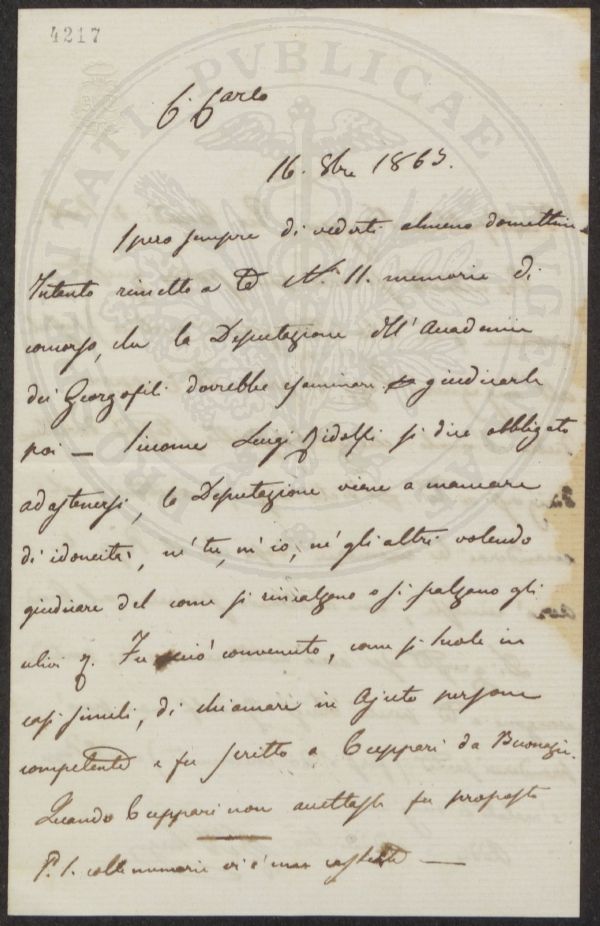 4217
C. Carlo
16. 8bre 1865.
Spero sempre di vederti almeno
Intanto rimetto a te N.° 11. memorie di
concorso, che la Deputazione dell'Accademia
dei Georgofili dovrebbe esaminare giudicarle
poi — Siccome Luigi Ridolfi si dice obbligato
ad astenersi, la Deputazione viene a mancare
di idoneità, nè tu, nè io, nè gli altri volendo
giudicare del come si rincalzano o si scalzano gli
ulivi Fu perciò convenuto, come si suole in
casi simili, di chiamare in ajuto persone
competenti e fu scritto a Cuppari da
Quando Cuppari non accettasse fu proposto
P.S. colle memorie vi è una
PROSPERITATI PUBLICAE